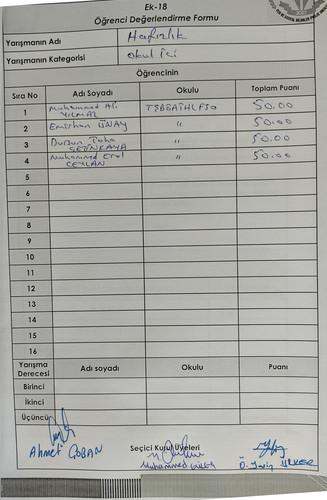 Ek-18
Öğrenci Değerlendirme Formu
Yarışmanın Adı Hafızlık
Yarışmanın Kategorisi okul içi
Öğrencinin
Sıra No Adı Soyadı Okulu Toplam Puanı
1 Muhammed Ali YILMAZ 50.00
2 Emirhan ÜNAY " 50.00
3 Dursun Taha ÇETİNKAYA " 50.00
4 Muhammed Erol CEYLAN " 50.00
5
6
7
8
9
10
11
12
13
14
15
16
Yarışma Derecesi Adı soyadı Okulu Puanı
Birinci
İkinci
Üçüncü
Seçici Kurul Üyeleri
Ahmet ÇOBAN Muhammed ÜLKER